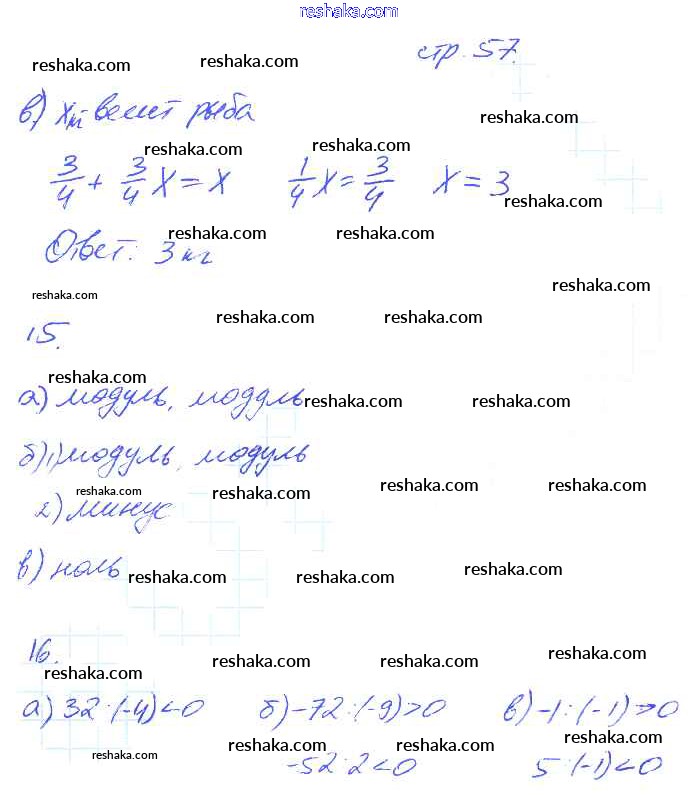 reshaka.com
стр. 57.
reshaka.com reshaka.com
в) x кг - весит рыба
reshaka.com
reshaka.com
3/4 + 3/4 x = x 1/4 x = 3/4 x = 3
reshaka.com
reshaka.com reshaka.com
Ответ: 3 кг
reshaka.com reshaka.com
15.
reshaka.com reshaka.com
reshaka.com
а) модуль, модуль
reshaka.com reshaka.com
б) 1) модуль, модуль
reshaka.com reshaka.com reshaka.com reshaka.com
2) минус
в) ноль
reshaka.com reshaka.com reshaka.com
16.
reshaka.com reshaka.com reshaka.com reshaka.com
а) 32 : (-4) < 0 б) -72 : (-9) > 0 в) -1 : (-1) > 0
reshaka.com reshaka.com reshaka.com reshaka.com
-52 : 2 < 0 5 : (-1) < 0